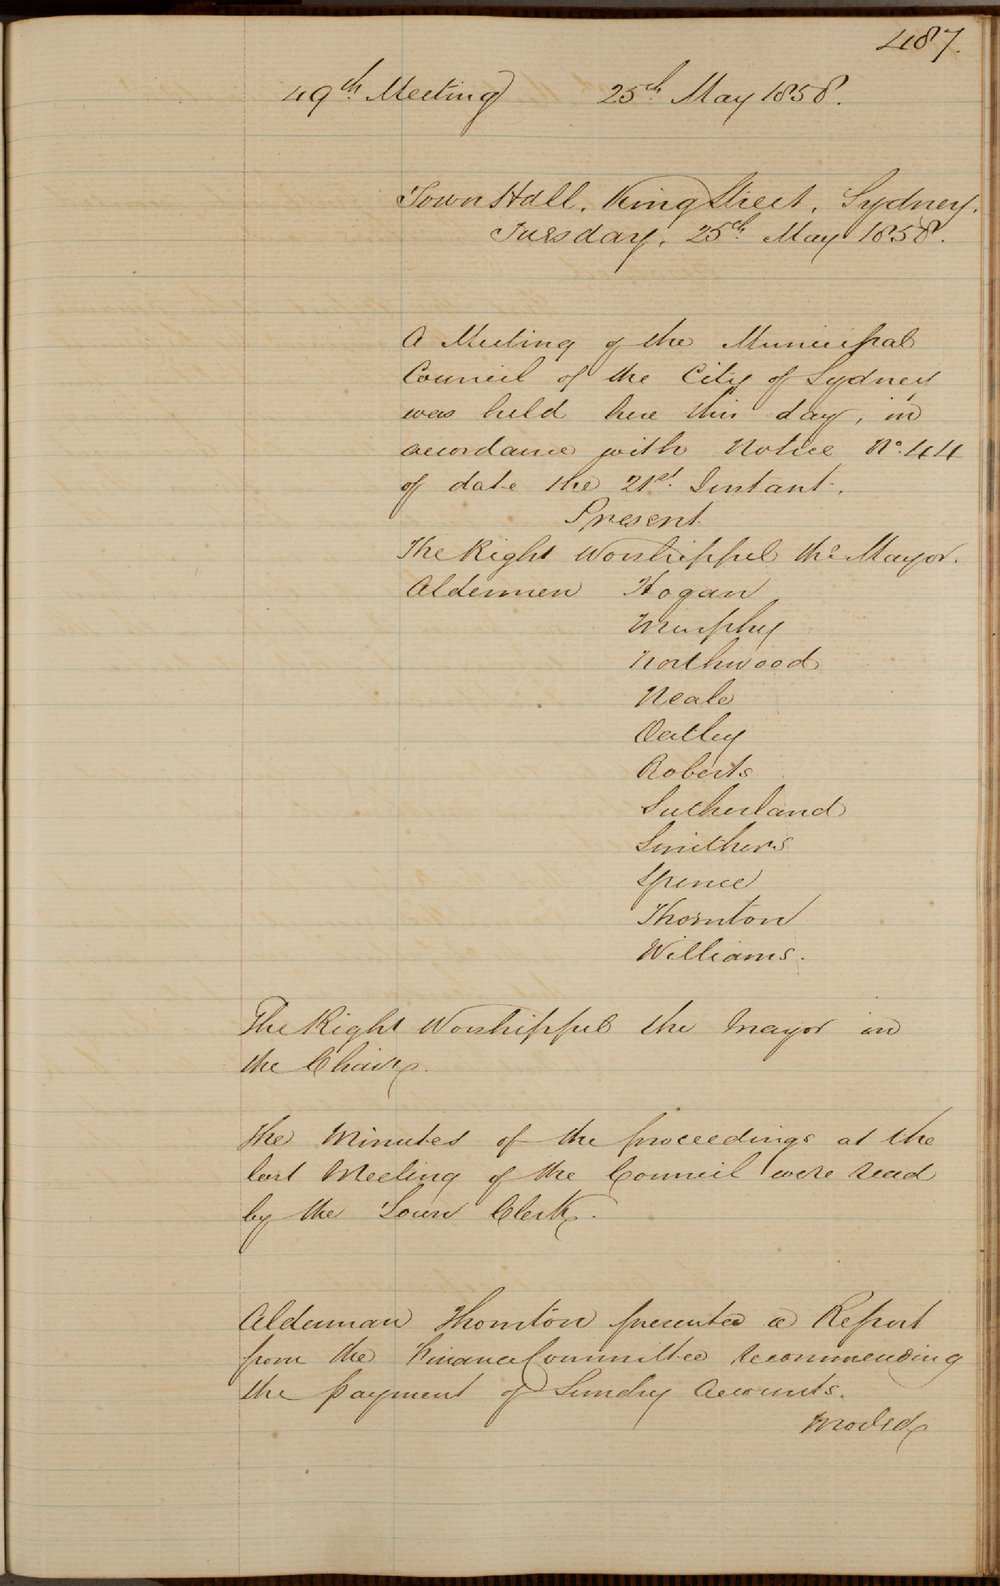 487.
49th Meeting 25th May 1858.
Town Hall, King Street, Sydney.
Tuesday, 25th May 1858.
A Meeting of the Municipal
Council of the City of Sydney
was held here this day, in
accordance with Notice No. 44
of date the 21st Instant.
Present
The Right Worshipful the Mayor.
Aldermen Hogan
Murphy
Northwood
Neale
Oatley
Roberts
Sutherland
Smithers
Spence
Thornton
Williams.
The Right Worshipful the Mayor in
the Chair.
The Minutes of the proceedings at the
last Meeting of the Council were read
by the Town Clerk.
Alderman Thornton presented a Report
from the Finance Committee recommending
the payment of Sundry Accounts.
Moved